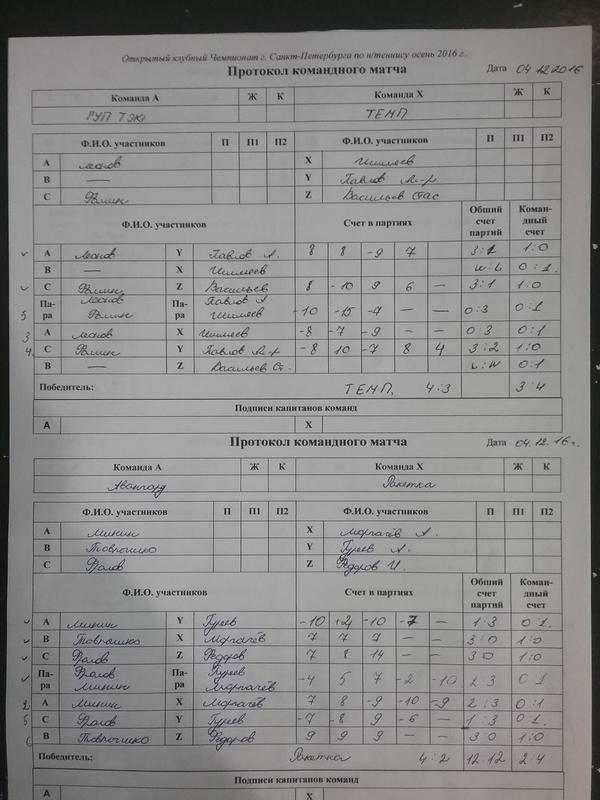 Открытый клубный Чемпионат г. Санкт-Петербурга по н/теннису осень 2016 г..
Протокол командного матча Дата 04.12.2016
Команда А Ж К Команда Х Ж К
ТЕМП
Ф.И.О. участников П П1 П2 Ф.И.О. участников П П1 П2
А Леонов Х
В — Y Павлов Ал-р
С Z Васильев Стас
Ф.И.О. участников Счет в партиях Общий счет партий Командный счет
А Леонов Y Павлов А. 8 8 -9 7 3:1 1:0
В — Х w:L 0:1
С Z Васильев 8 -10 9 6 — 3:1 1:0
5 Пара Леонов Пара Павлов А. -10 -15 -7 — — 0:3 0:1
3 А Леонов Х -8 -7 -9 — — 0:3 0:1
4 С Y Павлов Ал-р -8 10 -7 8 4 3:2 1:0
В — Z Васильев Ст. L:W 0:1
Победитель: ТЕМП 4:3 3:4
Подписи капитанов команд
А Х
Протокол командного матча Дата 04.12.16г.
Команда А Ж К Команда Х Ж К
Авангард Ракетка
Ф.И.О. участников П П1 П2 Ф.И.О. участников П П1 П2
А Минин Х Моргачёв А.
В Y Гуреев А.
С Фролов Z Федоров И.
Ф.И.О. участников Счет в партиях Общий счет партий Командный счет
А Минин Y Гуреев -10 -10 -7 — 1:3 0:1
В Х Моргачёв 7 7 7 — — 3:0 1:0
С Фролов Z Федоров 7 8 14 — — 3:0 1:0
Пара Фролов Минин Пара Гуреев Моргачёв -4 5 7 -2 -10 2:3 0:1
2 А Минин Х Моргачёв 7 8 -9 -10 -9 2:3 0:1
5 С Фролов Y Гуреев -7 -8 9 -6 — 1:3 0:1
6 В Z Федоров 9 9 9 — — 3:0 1:0
Победитель: Ракетка 4:2 12:12 2:4
Подписи капитанов команд
А Х